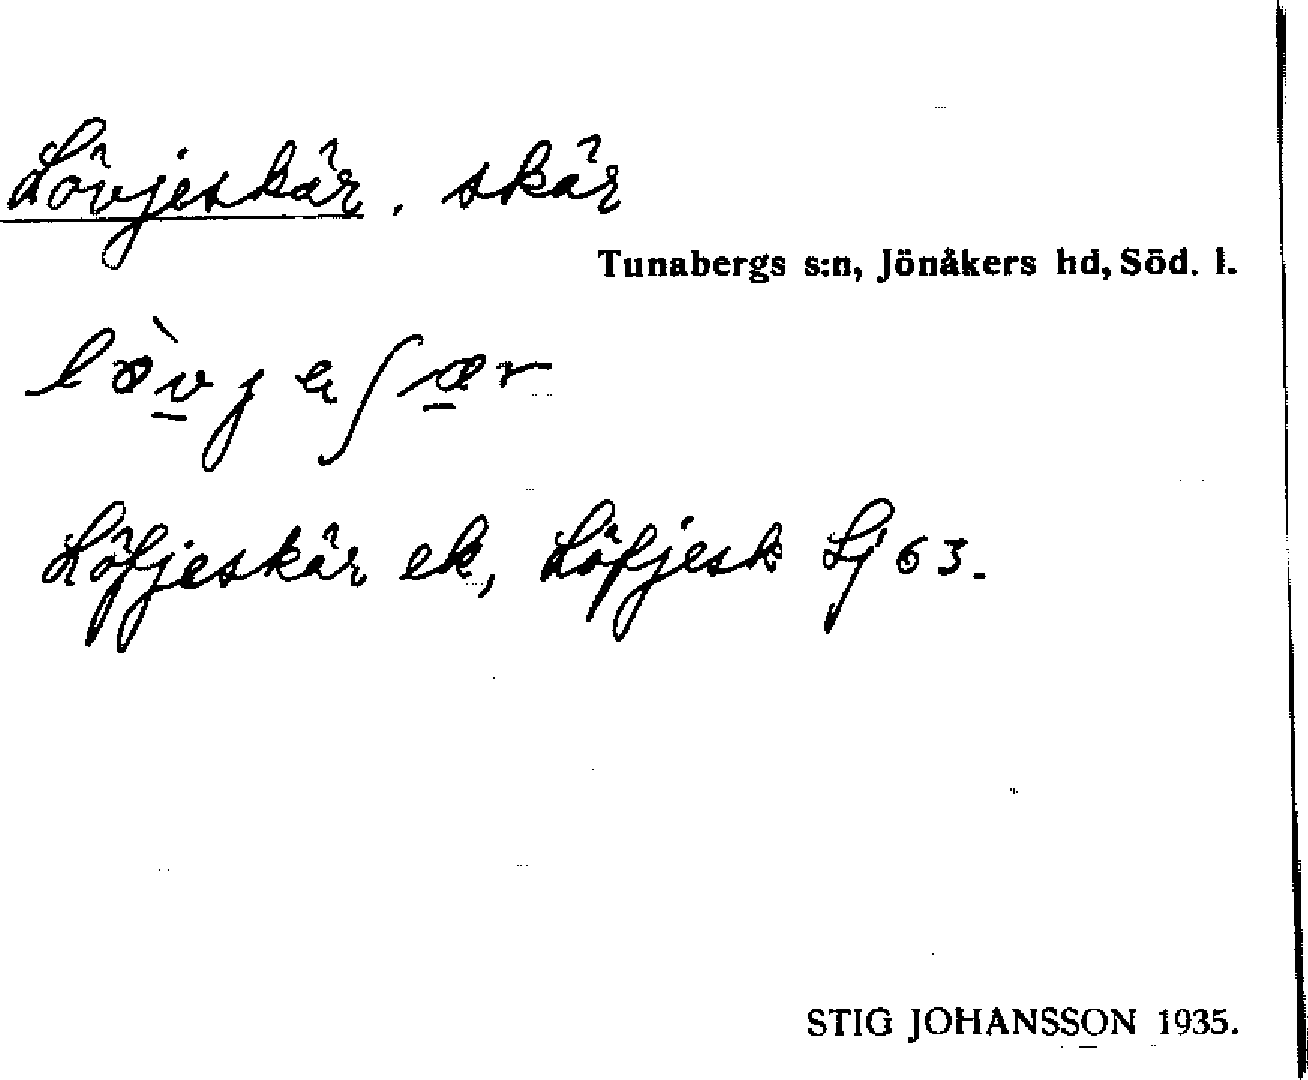 Lövjeskär, skär
Tunabergs s:n, Jönåkers hd, Söd. l.
Löfjeskär ek, Löfjesk Lf 63.
STIG JOHANSSON 1935.